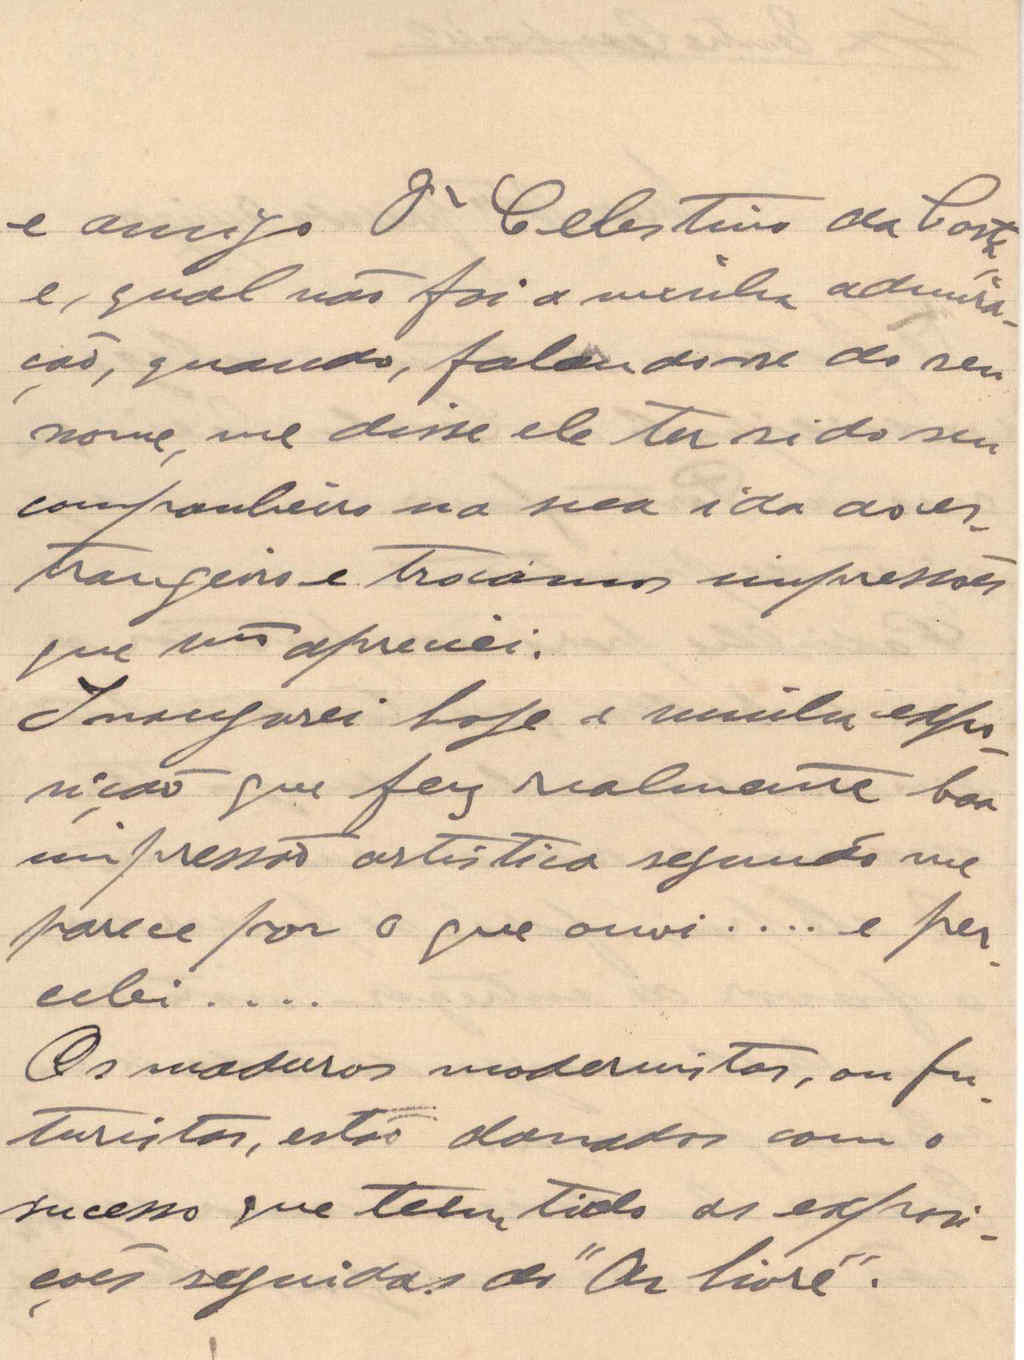 e amigo Dr Celestino da Costa
e, qual não foi a minha admira-
ção, quando, falando-se do seu
nome, me disse ele ter sido seu
companheiro na sua ida ao es-
trangeiro e trocámos impressões
que muito apreciei.
Inaugurei hoje a minha expo-
sição que fez realmente boa
impressão artistica segundo me
parece por o que ouvi .... e per-
cebi ....
Os maduros modernistas, ou fu-
turistas, estão danados com o
sucesso que teem tido as exposi-
ções seguidas do "Ar livre".